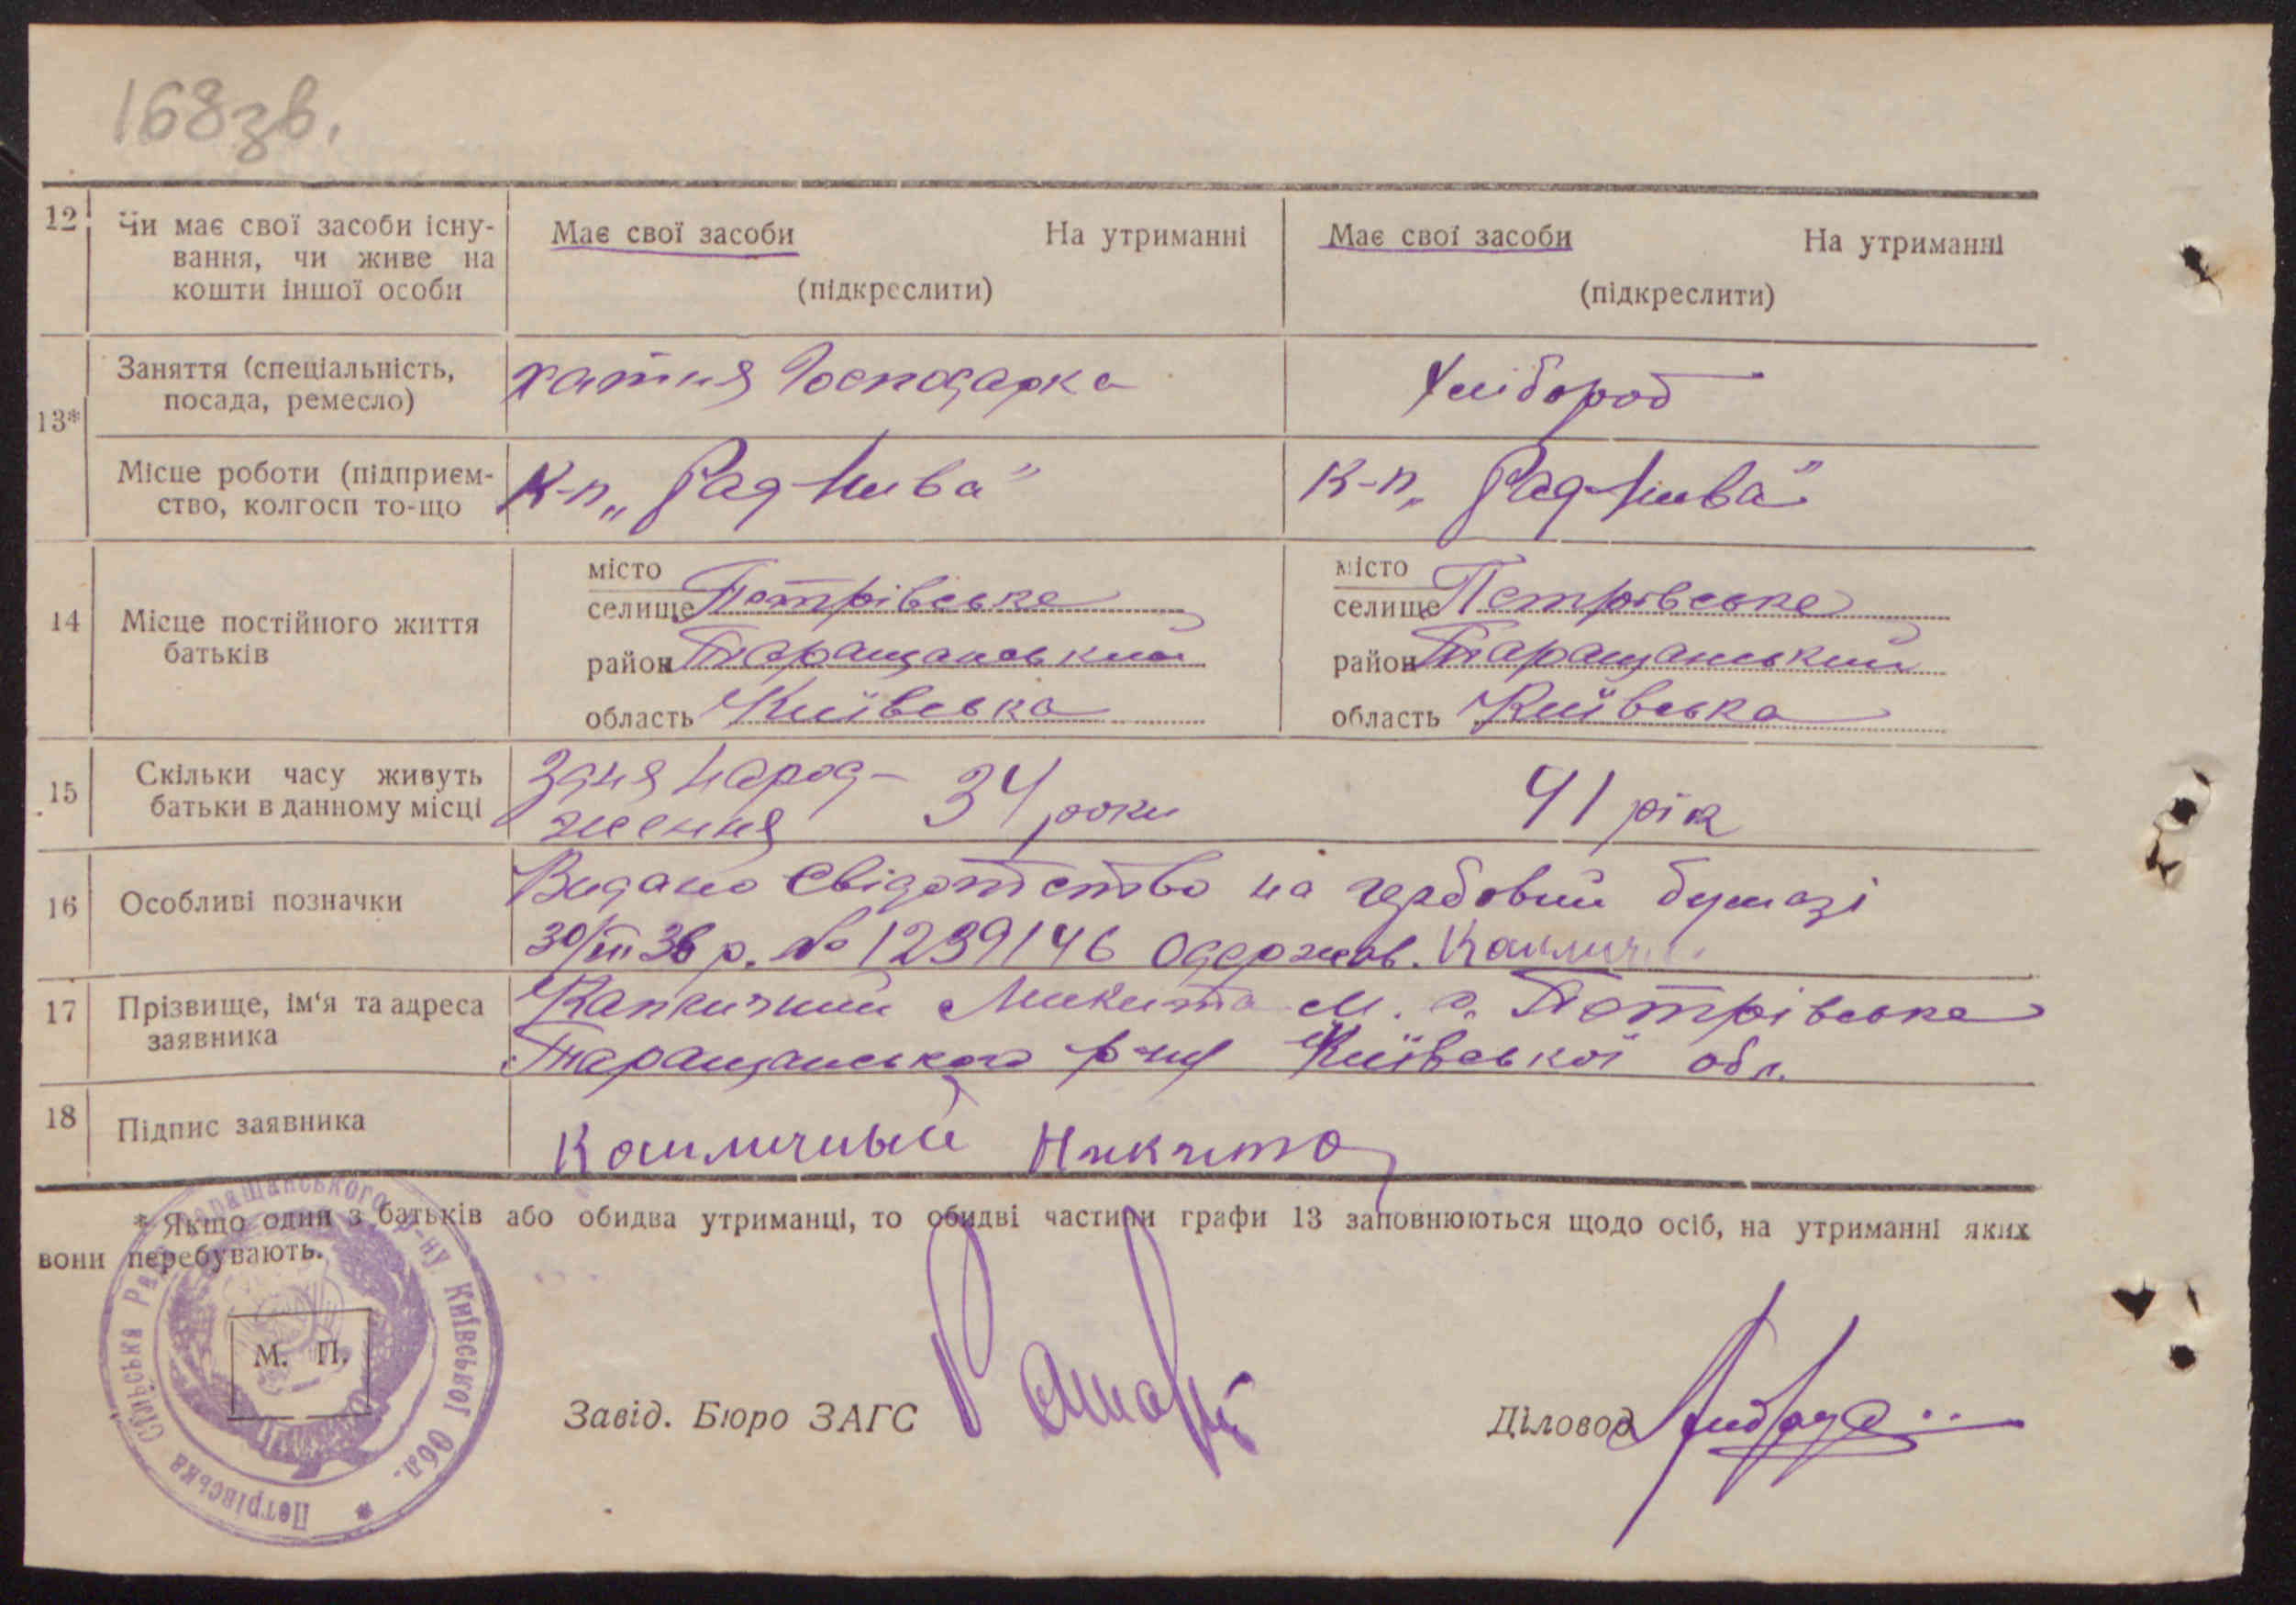 168зв.
12 Чи має свої засоби існу-
вання, чи живе на
кошти іншої особи
Має свої засоби На утриманні
(підкреслити)
Має свої засоби На утриманні
(підкреслити)
13*
Заняття (спеціальність,
посада, ремесло)
хатня Господарка
Хлібороб
Місце роботи (підприєм-
ство, колгосп то-що
К-п „Рад Нива"
К-п „Рад Нива"
14 Місце постійного життя
батьків
місто
селище Петрівське
район Таращанський
область Київська
місто
селище Петрівське
район Таращанський
область Київська
15 Скільки часу живуть
батьки в данному місці
З дня народ-
ження 34 роки
41 рік
16 Особливі позначки
Видано Свідотство на гербовий бумазі
30/III 36 р. № 1239146 Одержав.
17 Прізвище, ім'я та адреса
заявника
Микита М. с. Петрівське
Таращанського р-ну Київської обл.
18 Підпис заявника
Никита
* Якщо один з батьків або обидва утриманці, то обидві частини графи 13 заповнюються щодо осіб, на утриманні яких
вони перебувають.
Петрівська Сільська Рада Таращанського Р-ну Київської Обл.
М. П.
Завід. Бюро ЗАГС
Діловод